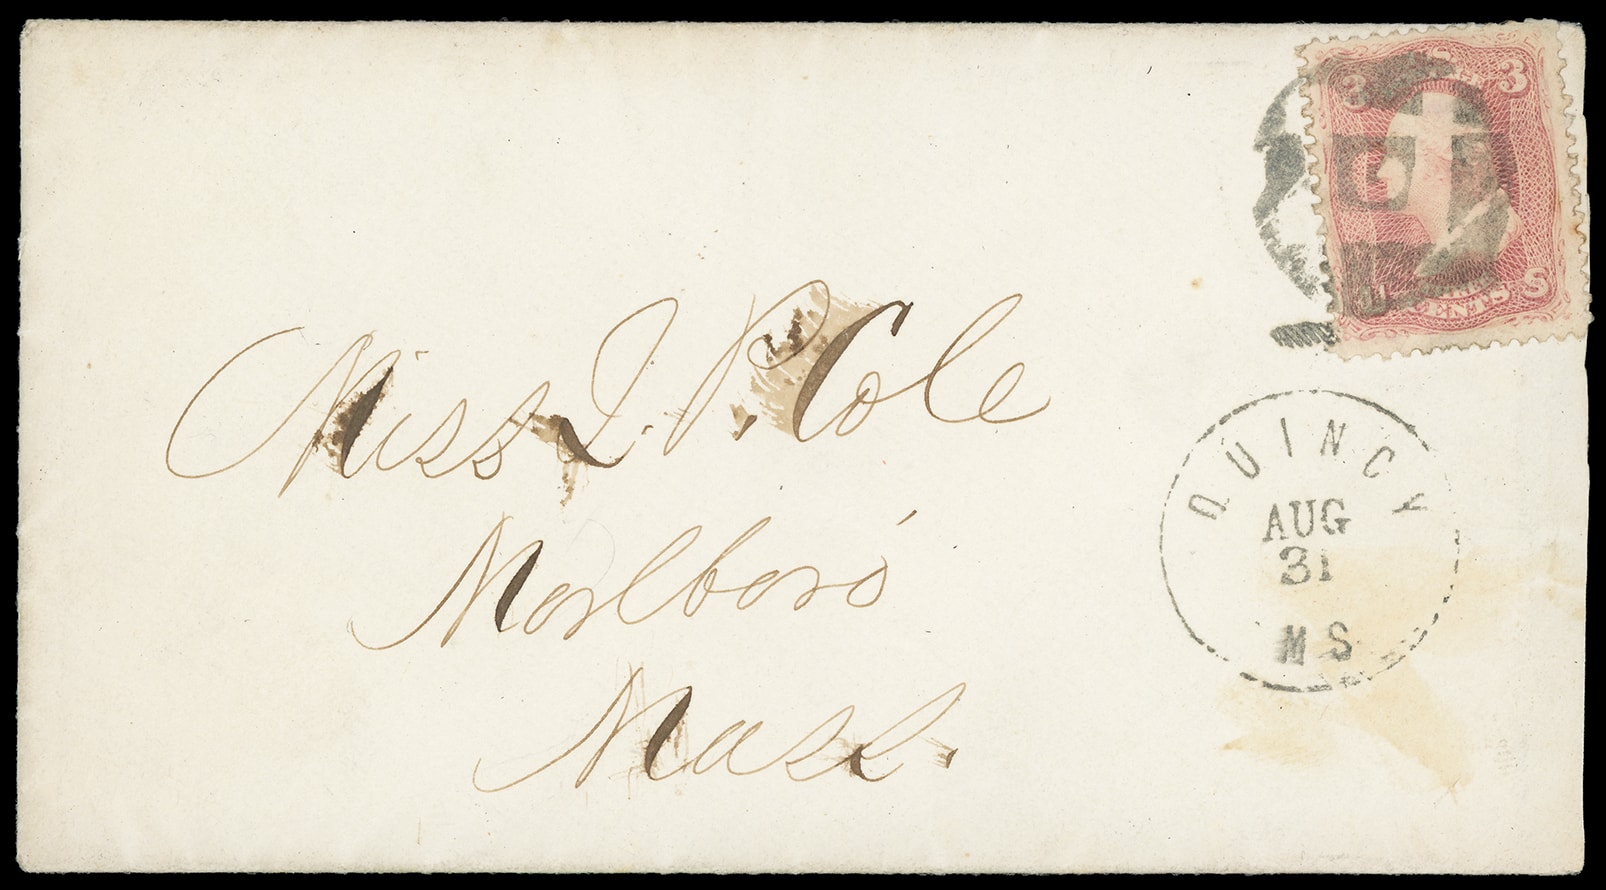 3 3
CENTS
Miss J. P. Cole
QUINCY
AUG
31
MS
Marlboro'
Mass.